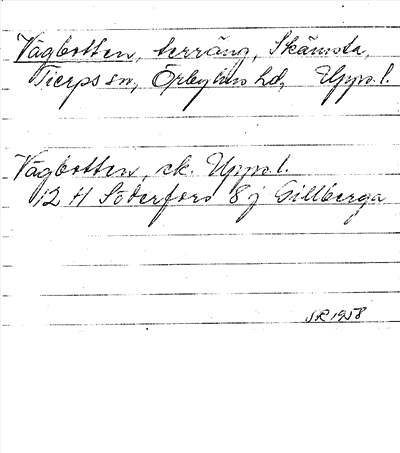 Vagbotten, terräng, Skämsta,
Tierps sn, Örbyhus hd, Uppl.
Vagbotten, ek. Uppl.
12 H Söderfors 8 j Gillberga
SR 1958